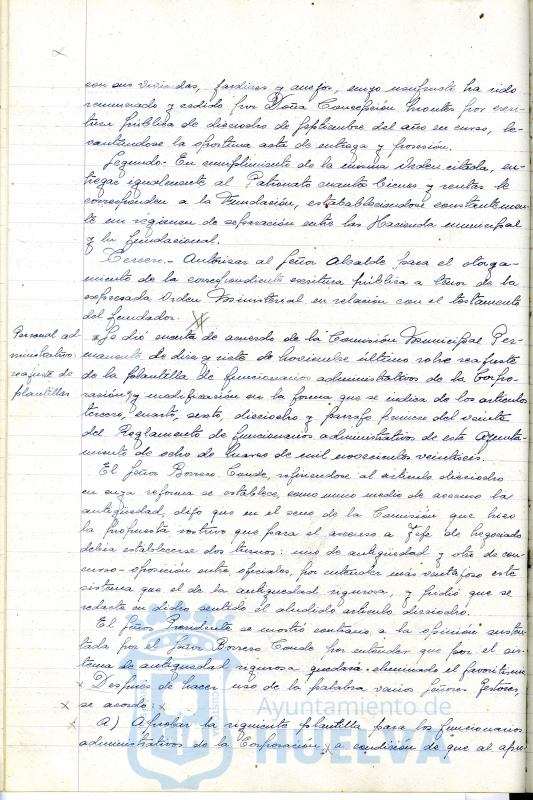 con sus viviendas, jardines y anejos, cuyo usufructo ha sido
renunciado y cedido por Doña Concepción Montes por escri-
tura pública de dieciocho de Septiembre del año en curso, le-
vantándose la oportuna acta de entrega y posesión.
Segundo.- En cumplimiento de la misma Orden citada, en-
tregar igualmente al Patronato cuantos bienes y rentas le
corresponden a la Fundación, estableciéndose constantemen-
te un régimen de separación entre las Hacienda municipal
y la fundacional.
Tercero.- Autorizar al Señor Alcalde para el otorga-
miento de la correspondiente escritura pública a tenor de la
expresada Orden Ministerial en relación con el testamento
del fundador.
Personal ad-
ministrativo:
reajuste de
plantillas
Se dió cuenta de acuerdo de la Comisión Municipal Per-
manente de diez y siete de Noviembre último sobre reajuste
de la plantilla de funcionarios administrativos de la Corpo-
ración y modificación en la forma que se indica de los artículos
tercero, cuarto, sexto, dieciocho y párrafo primero del veinte
del Reglamento de funcionarios administrativos de este Ayunta-
miento de ocho de Marzo de mil novecientos veintiseis.
El Señor Borrero Conde, refiriéndose al artículo dieciocho
en cuya reforma se establece, como único medio de ascenso la
antigüedad, dijo que en el seno de la Comisión que hizo
la propuesta sostuvo que para el ascenso a Jefe de Negociado
debía establecerse dos turnos: uno de antigüedad y otro de con-
curso-oposición entre oficiales, por entender más ventajoso este
sistema que el de la antigüedad rigurosa, y pidió que se
redacte en dicho sentido el aludido artículo dieciocho.
El Señor Presidente se mostró contrario a la opinión susten-
tada por el Señor Borrero Conde por entender que por el sis-
tema de antigüedad rigurosa quedaría eliminado el favoritismo
Después de hacer uso de la palabra varios Señores Gestores,
se acordó:
A) Aprobar la siguiente plantilla para los funcionarios
administrativos de la Corporación, a condición de que al apro-
Ayuntamiento de
HUELVA